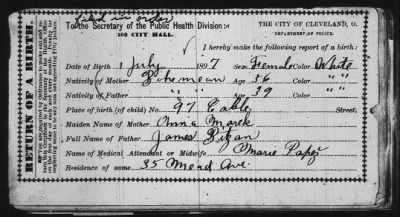 Filed in order
To the Secretary of the Public Health Division:
THE CITY OF CLEVELAND, O.
DEPARTMENT OF POLICE.
103 CITY HALL.
I hereby make the following report of a birth:
RETURN OF A BIRTH.
Date of Birth 1 July 1897 Sex Female Color White
Nativity of Mother Bohemian Age 36 Color " "
Nativity of Father " " Age 39 Color " "
Place of birth (of child) No. 97 Street.
Maiden Name of Mother Anna Marek
Full Name of Father James
Name of Medical Attendant or Midwife Marie
Residence of same 35 Mead Ave.